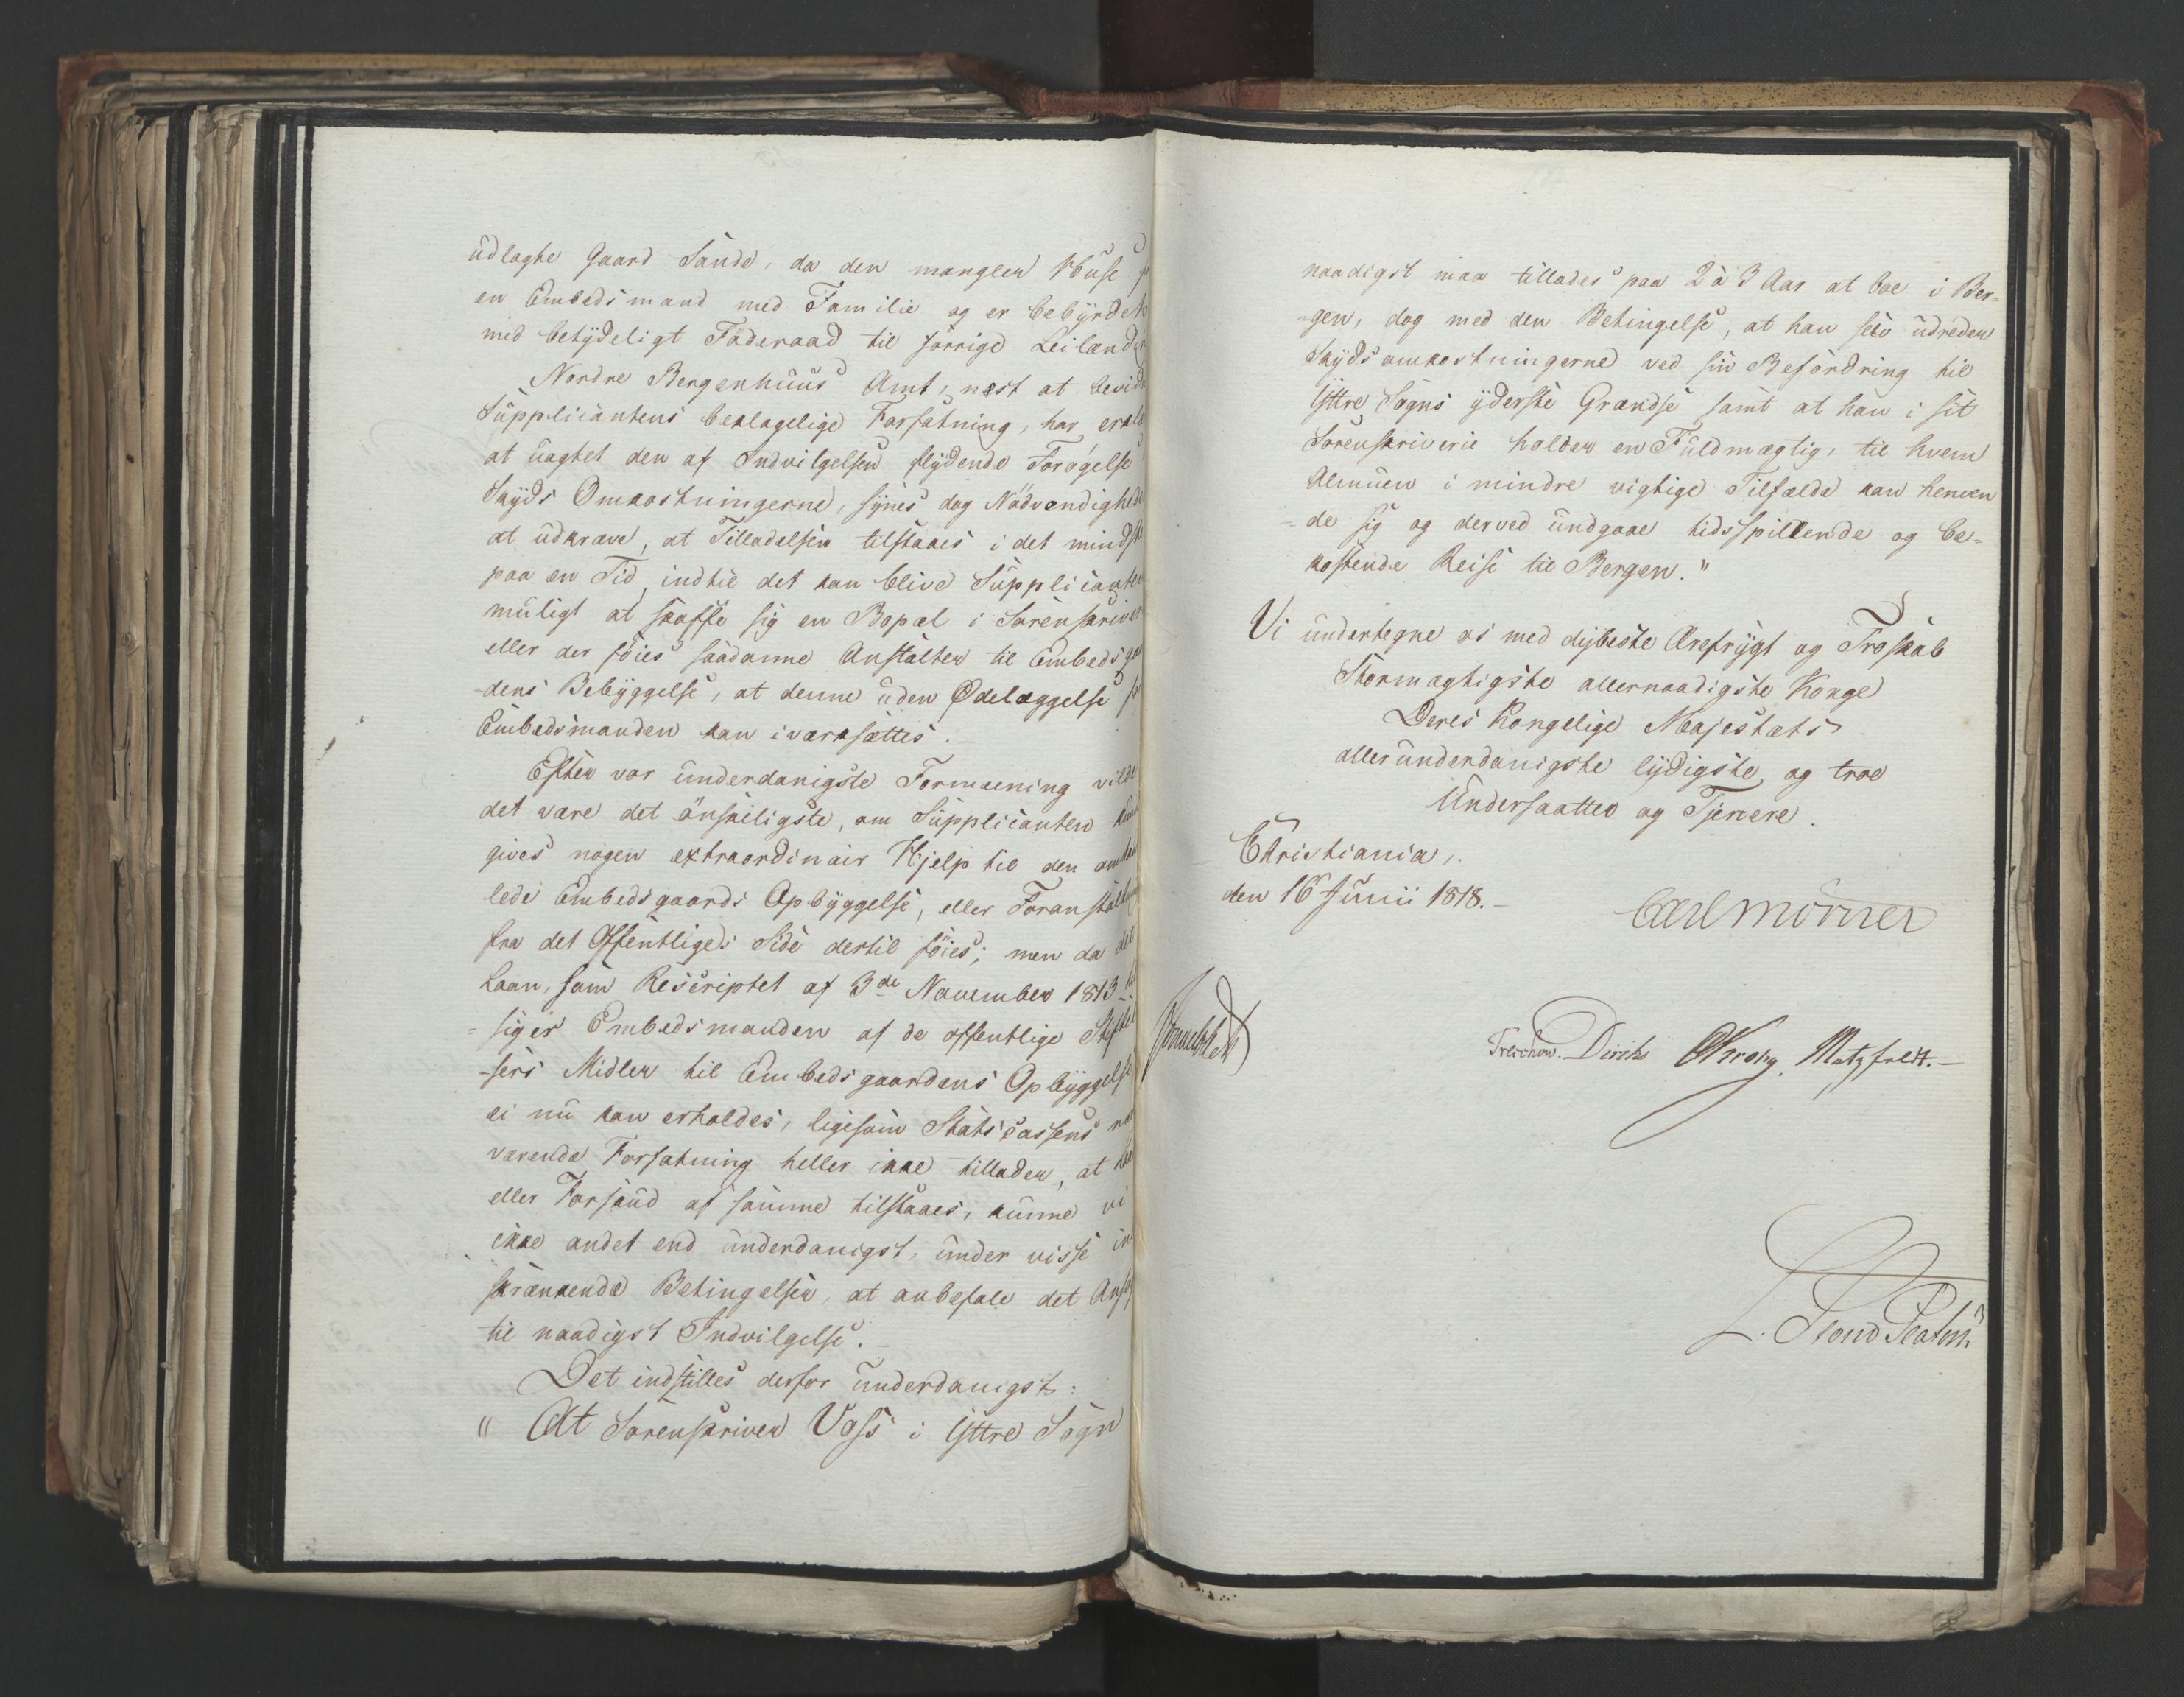 udlagte Gaard Sande, da den mangler Huse
en Embedsmand med Familie og er bebyrdet
med betydeligt Föderaad til forrige Leilænding
Nordre Bergenhuus Amt, næst at bevidne
Supplicantens beklagelige Forfatning, har erklæ
at uagtet den af Indvilgelsen flydende Forøgelse
Skyds Omkostningerne, synes dog Nödvendighede
at udkræve, at Tilladelsen tilstaaes i det mindste
paa en Tid, indtil det kan blive Supplicanten
muligt at skaffe sig en Bopæl i Sorenskriver
eller der föies saadanne Anstalter til Embedsgaar
-dens Bebyggelse, at denne uden Ødelæggelse
Embedsmanden kan iværksættes.
Efter vor underdanigste Formening vilde
det være det önskeligste, om Supplicanten kunde
gives nogen extraordinair Hjelp til den omhand
lede Embedsgaards Opbyggelse, eller Foranstaltning
fra det Offentliges Side dertil föies; men da det
Laan, som Rescriptet af 3de November 1813 til
-siger Embedsmanden af de offentlige Stiftel
-sers Midler til Embedsgaardens Opbyggelse
ei nu kan erholdes, ligesom Statscassens nær
værende Forfatning heller ikke tillader, at
eller Forskud af samme tilstaaes, kunne vi
ikke andet end underdanigst, under visse ind
skrænkende Betingelser, at anbefale det Ansög
til naadigst Indvilgelse.
Det indstilles derfor underdanigst:
" At Sorenskriver Voss i Yttre Sogn
naadigst maa tillades paa 2 à 3 Aar at boe i Ber=
=gen, dog med den Betingelse, at han selv udreder
Skydsomkostningerne ved sin Befordring til
Yttre Sogns yderste Grændse samt at han i sit
Sorenskriverie holder en Fuldmægtig, til hvem
Almuen i mindre vigtige Tilfælde kan henven
=de sig og derved undgaae tidsspillende og be=
kostende Reise til Bergen."
Vi undertegne os med dybeste Ærefrygt og Troskab
Stormægtigste allernaadigste Konge
Deres Kongelige Majestæts
allerunderdanigste lydigste og troe
Undersaatter og Tjenere.
Christiania,
den 16 Junii 1818.-
Carl Mörner
Sommerhielm
Treschow. Diriks CKrohg. Motzfeldt.-
L. Stoud Platou